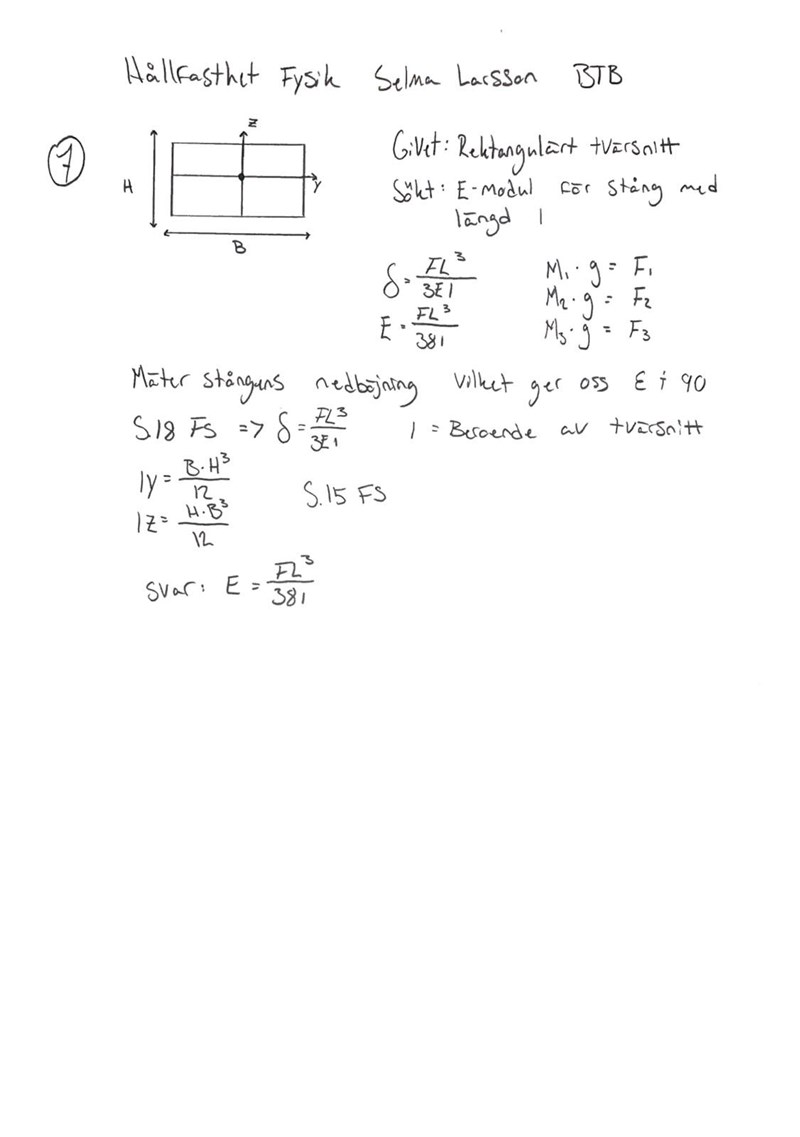 Hållfasthet Fysik Selma Larsson BTB
7
Z
H
Y
B
Givet: Rektangulärt tvärsnitt
Sökt: E-modul för stång med
längd l
δ = FL³/3EI
E = FL³/3δI
M₁ · g = F₁
M₂ · g = F₂
M₃ · g = F₃
Mäter stångens nedböjning vilket ger oss
S.18 FS => δ = FL³/3EI I = Beroende av tvärsnitt
Iy = B·H³/12
Iz = H·B³/12
S.15 FS
Svar: E = FL³/3δI